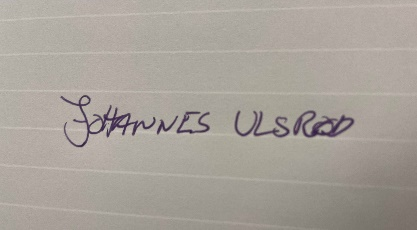 JOHANNES ULSROD